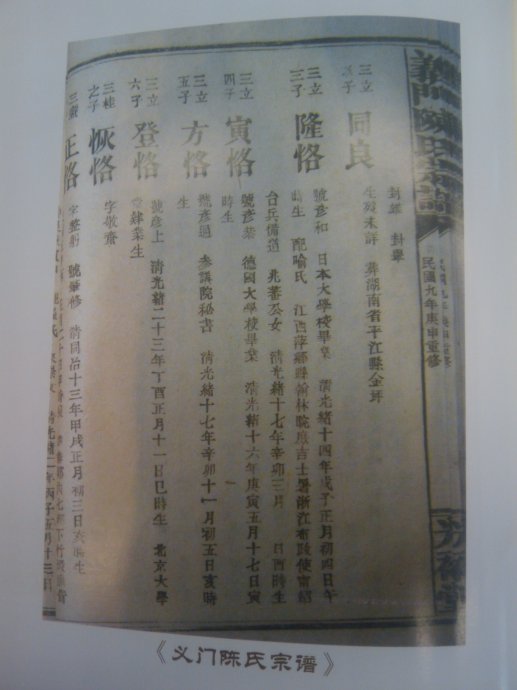 義門陳氏宗譜
民國九年庚申重修
三立
次子
同良
封雅 封舉
生歿未詳 葬湖南省平江縣金坪
三立
三子
隆恪
號彥和 日本大學校畢業 清光緒十四年戊子正月初四日午
時生 配喻氏 江西萍鄉縣翰林院庶吉士署浙江布政使甯紹
台兵備道 兆蕃公女 清光緒十七年辛卯三月 日酉時生
三立
四子
寅恪
號彥恭 德國大學校畢業 清光緒十六年庚寅五月十七日寅
時生
三立
五子
方恪
號彥通 參議院秘書 清光緒十七年辛卯十一月初五日亥時
生
三立
六子
登恪
號彥上 清光緒二十三年丁酉正月十一日巳時生 北京大學
堂肄業生
三桂
之子
恢恪
字敬齋
三
正恪
字整躬 號畢修 清同治十三年甲戌正月初三日亥時生
清光緒二年丙子五月十三日
《义门陈氏宗谱》